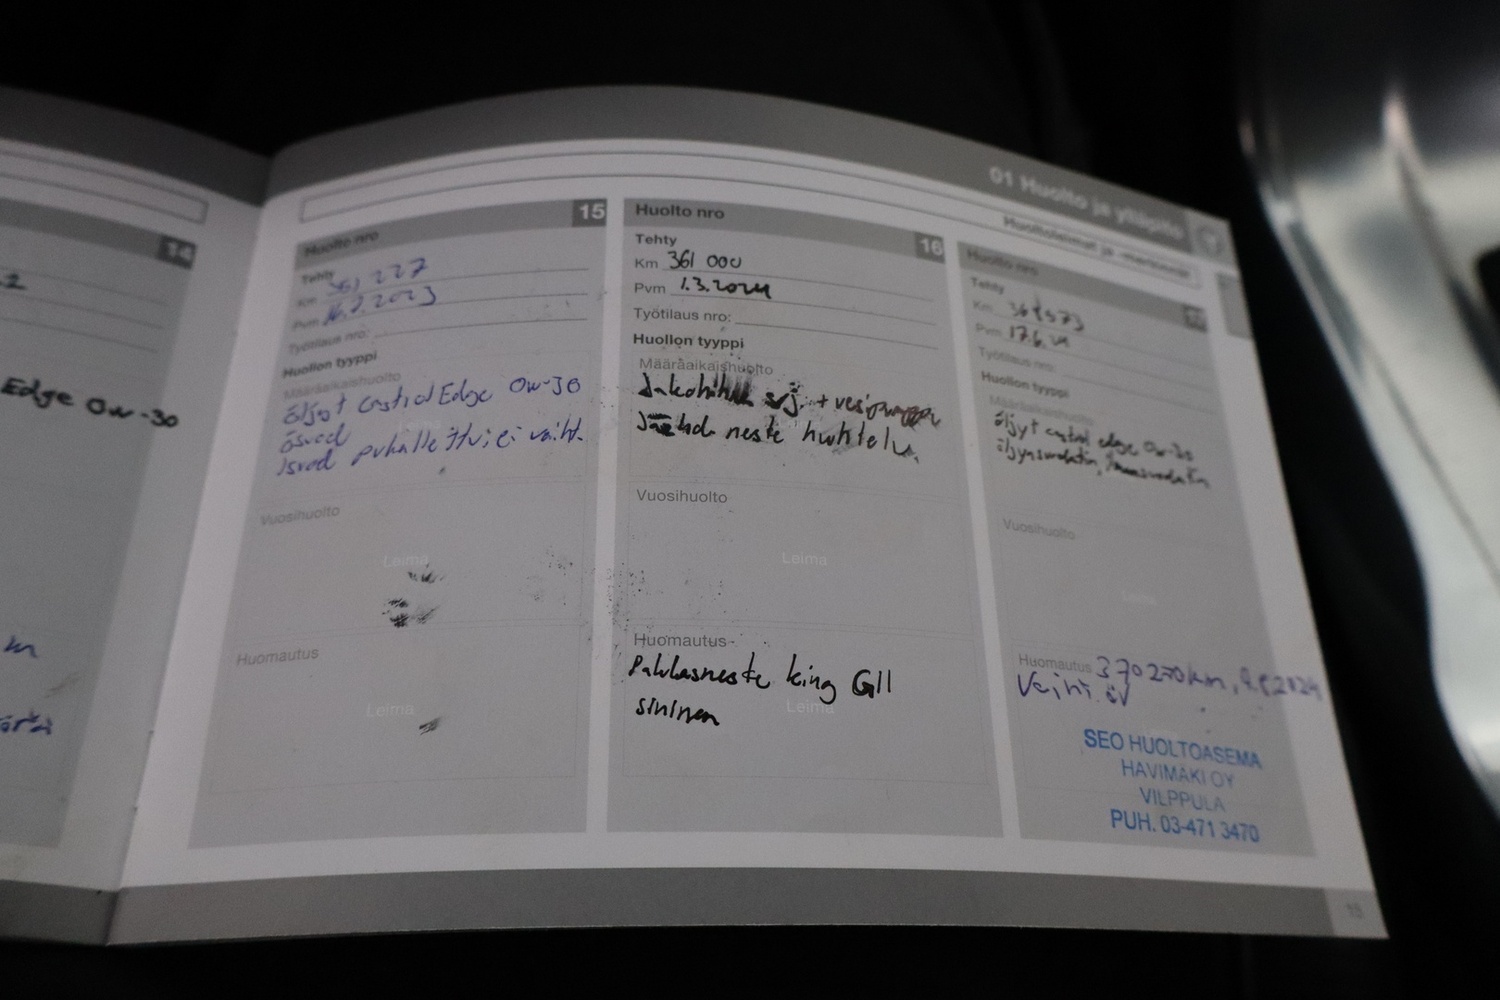 14
Edge 0w-30
01 Huolto ja ylläpito
Huoltoleimat ja -merkinnät
Huolto nro 15
Tehty
Km 227
Pvm 2023
Työtilaus nro:
Huollon tyyppi
Määräaikaishuolto
öljyt castrol Edge 0w-30
ösuod
isuod puhallettu ei vaiht.
Vuosihuolto
Leima
Huomautus
Leima
Huolto nro 16
Tehty
Km 361 000
Pvm 1.3.2024
Työtilaus nro:
Huollon tyyppi
Määräaikaishuolto
Jakohihna srj. + vesipumppu
Jäähd. neste huuhtelu.
Vuosihuolto
Leima
Huomautus
Pakkasneste king G11
sininen
Leima
Huolto nro
Tehty
Km
Pvm 17.6.24
Työtilaus nro:
Huollon tyyppi
Määräaikaishuolto
öljyt castrol edge 0w-30
öljynsuodatin, ilmansuodatin
Vuosihuolto
Leima
Huomautus 370270km, 2024
SEO HUOLTOASEMA
HAVIMÄKI OY
VILPPULA
PUH. 03-471 3470
15